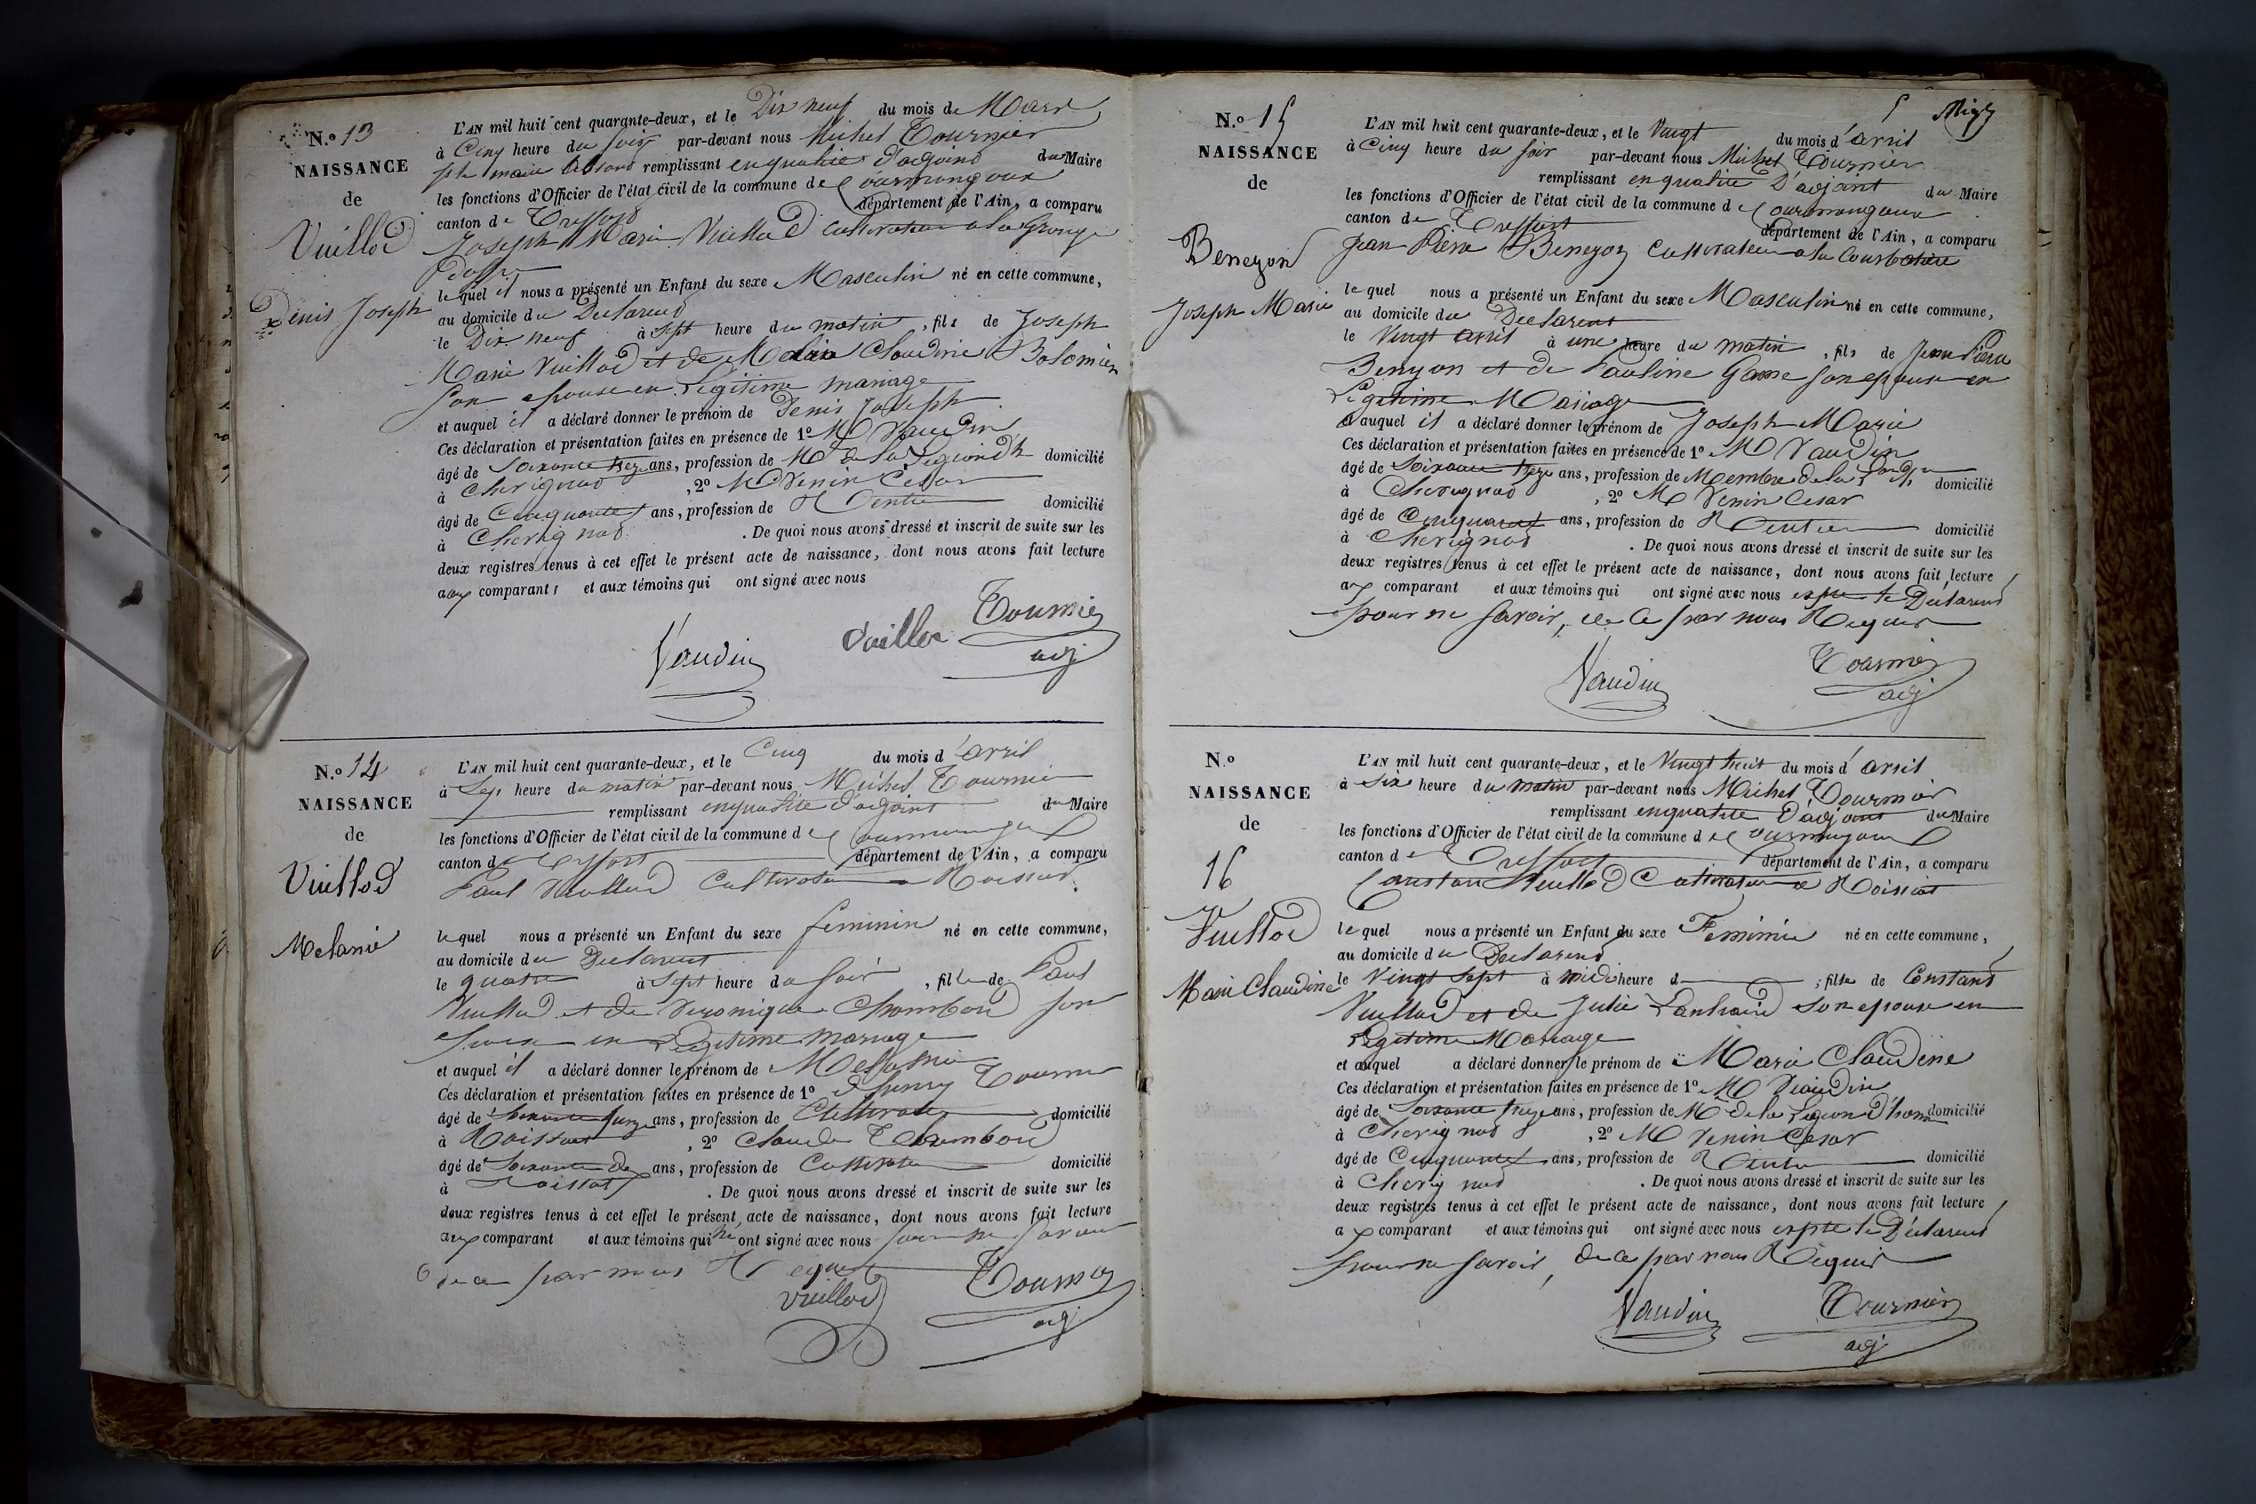 N.o 13
NAISSANCE
de
Vuillod
Denis Joseph
L'AN mil huit cent quarante-deux, et le Dix neuf du mois de Mars
à Cinq heure du soir par-devant nous Michel Tournier
le maire absent remplissant en qualité d'adjoint du Maire
les fonctions d'Officier de l'état civil de la commune de Courmangoux
canton de Treffort département de l'Ain, a comparu
Joseph Marie Vuillod cultivateur a la Grange
le quel il nous a présenté un Enfant du sexe Masculin né en cette commune,
au domicile du Declarent
le Dix neuf à sept heure du matin, fils de Joseph
Marie Vuillod et de Claudine Bolomier
son epouse en Légitime mariage
et auquel il a déclaré donner le prénom de Denis Joseph
Ces déclaration et présentation faites en présence de 1o M Vaudin
âgé de Soixante treze ans, profession de M de la Legion d'h domicilié
à Cherignad, 2o M Venin Cesar
âgé de Cinquante ans, profession de Rentier domicilié
à Cherignad. De quoi nous avons dressé et inscrit de suite sur les
deux registres tenus à cet effet le présent acte de naissance, dont nous avons fait lecture
aux comparant et aux témoins qui ont signé avec nous
Vaudin Vuillod Tournier
adj
N.o 14
NAISSANCE
de
Vuillod
Melanie
L'AN mil huit cent quarante-deux, et le Cinq du mois d'avril
à Sept heure du matin par-devant nous Michel Tournier
remplissant en qualité d'adjoint du Maire
les fonctions d'Officier de l'état civil de la commune de Courmangoux
canton de Treffort département de l'Ain, a comparu
Paul Vuillod Cultivateur a Roissiat
le quel nous a présenté un Enfant du sexe feminin né en cette commune,
au domicile du Declarent
le quatre à Sept heure du soir, fille de Paul
Vuillod et de Veronique Chambou son
en Legitime mariage
et auquel il a déclaré donner le prénom de Melanie
Ces déclaration et présentation faites en présence de 1o Tournier
âgé de ans, profession de Cultivateur domicilié
à Roissiat, 2o Claude Chambou
âgé de Soixante ans, profession de Cultivateur domicilié
à Roissiat. De quoi nous avons dressé et inscrit de suite sur les
deux registres tenus à cet effet le présent acte de naissance, dont nous avons fait lecture
aux comparant et aux témoins qui ne ont signé avec nous pour ne savoir
de ce par nous Requit
Vuillod Tournier
adj
N.o 15
NAISSANCE
de
Benezon
Joseph Marie
L'AN mil huit cent quarante-deux, et le Vingt du mois d'avril
à Cinq heure du soir par-devant nous Michel Tournier
remplissant en qualité D'adjoint du Maire
les fonctions d'Officier de l'état civil de la commune de Courmangoux
canton de Treffort département de l'Ain, a comparu
Jean Pierre Benezon Cultivateur a la Courbatière
le quel nous a présenté un Enfant du sexe Masculin né en cette commune,
au domicile du Declarent
le Vingt avril à une heure du matin, fils de Jean Pierre
Benezon et de Pauline Game son epouse en
Legitime Mariage
et auquel il a déclaré donner le prénom de Joseph Marie
Ces déclaration et présentation faites en présence de 1o M Vaudin
âgé de Soixante treze ans, profession de Membre de la domicilié
à Cherignad, 2o M Venin Cesar
âgé de Cinquante ans, profession de Rentier domicilié
à Cherignad. De quoi nous avons dressé et inscrit de suite sur les
deux registres tenus à cet effet le présent acte de naissance, dont nous avons fait lecture
aux comparant et aux témoins qui ont signé avec nous expte le Déclarend
pour ne savoir, de ce par nous Requis
Vaudin Tournier
adj
N.o
NAISSANCE
de
16
Vuillod
Marie Claudine
L'AN mil huit cent quarante-deux, et le Vingt huit du mois d'avril
à Six heure du matin par-devant nous Michel Tournier
remplissant en qualité D'adjoint du Maire
les fonctions d'Officier de l'état civil de la commune de Courmangoux
canton de Treffort département de l'Ain, a comparu
Constant Vuillod Cultivateur a Roissiat
le quel nous a présenté un Enfant du sexe Feminin né en cette commune,
au domicile du Declarend
le Vingt Sept à midi heure d , fille de Constand
Vuillod et de Julie son epouse en
Legitime Mariage
et auquel a déclaré donner le prénom de Marie Claudine
Ces déclaration et présentation faites en présence de 1o M Vaudin
âgé de Soixante treze ans, profession de M de la Legion D'honn domicilié
à Cherignad, 2o M Venin Cesar
âgé de Cinquante ans, profession de Rentier domicilié
à Cherignad. De quoi nous avons dressé et inscrit de suite sur les
deux registres tenus à cet effet le présent acte de naissance, dont nous avons fait lecture
aux comparant et aux témoins qui ont signé avec nous expte le Déclarend
pour ne savoir, de ce par nous Requis
Vaudin Tournier
adj